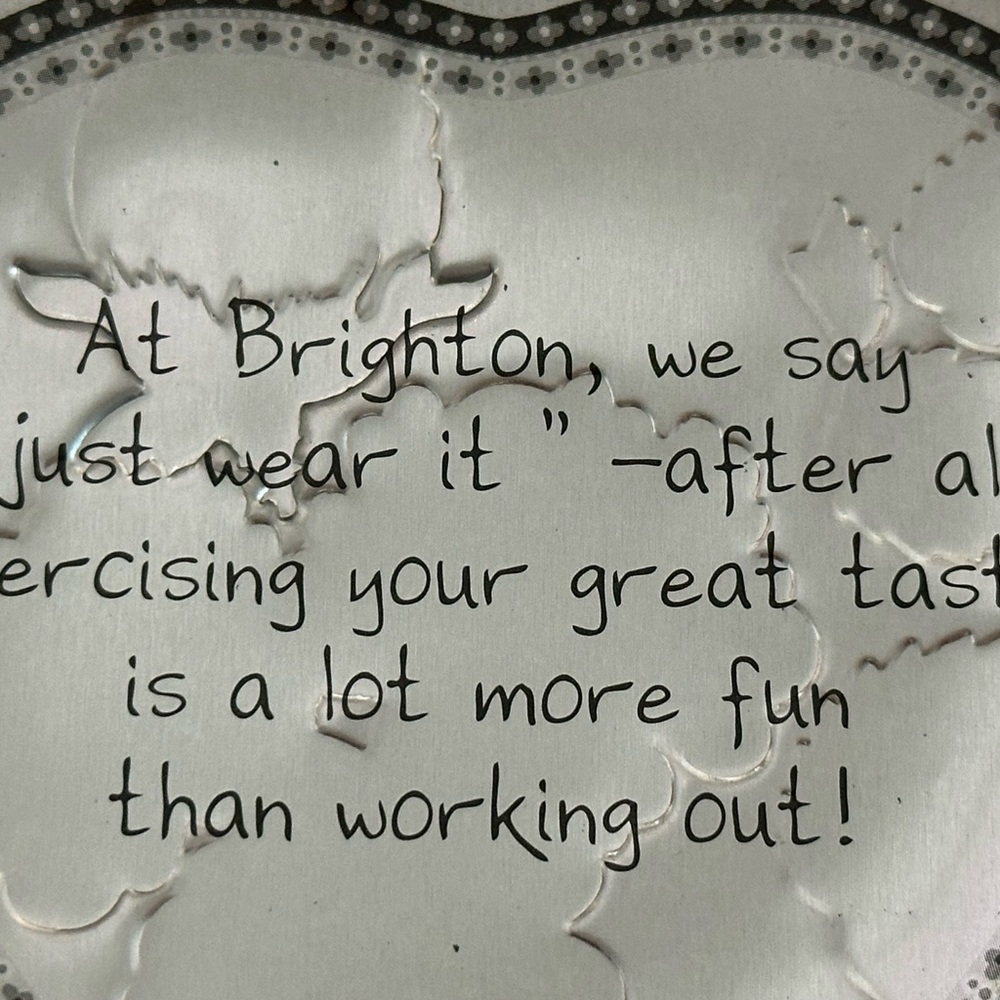 At Brighton, we say
just wear it " -after al
ercising your great tast
is a lot more fun
than working out!